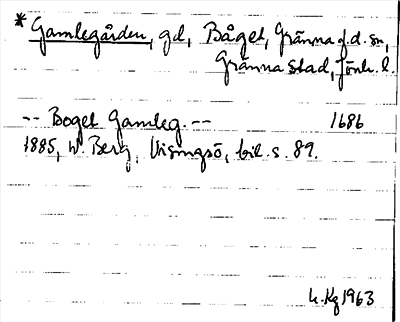 * Gamlegården, gd, Båget, Gränna g.d. sn,
Gränna stad, Jönk. l.
-- Boget Gamleg. -- 1686
1885, W. Berg, Visingsö, bil. s. 89.
1963